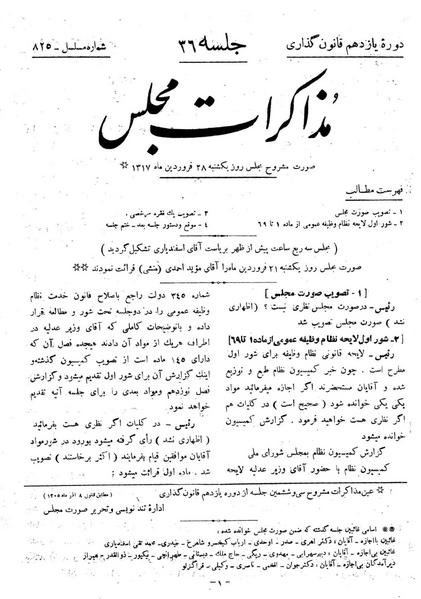 دورهٔ یازدهم قانون گذاری
جلسه ۳۶
شماره مسلسل - ۸۲۵
مذاکرات مجلس
صورت مشروح مجلس روز یکشنبه ۲۸ فروردین ماه ۱۳۱۷ ※
فهرست مطالب
۱ - تصویب صورت مجلس
۲ - شور اول لایحه نظام وظیفه عمومی از ماده ۱ تا ۶۹
۳ - تصویب یک فقره مرخصی
۴ - موقع و دستور جلسه بعد - ختم جلسه
( مجلس سه ربع ساعت پیش از ظهر بریاست آقای اسفندیاری تشکیل گردید )
صورت مجلس روز یکشنبه ۲۱ فروردین ماه را آقای مؤید احمدی (منشی) قرائت نمودند ※※
[ ۱ - تصویب صورت مجلس ]
رئیس - در صورت مجلس نظری نیست ؟ ( اظهاری
نشد ) صورت مجلس تصویب شد
[ ۲- شور اول لایحه نظام وظیفه عمومی از ماده ۱ تا ۶۹ ]
رئیس - لایحه قانونی نظام وظیفه برای شور اول
مطرح است . چون خبر کمیسیون نظام طبع و توزیع
شده و آقایان مستحضرند اگر اجازه میفرمائید مواد
یکی یکی خوانده شود ( صحیح است ) در کلیات هم
اگر نظری هست خواهید فرمود . گزارش کمیسیون
خوانده میشود
گزارش کمیسیون نظام بمجلس شورای ملی
کمیسیون نظام با حضور آقای وزیر عدلیه لایحه
شماره ۳۴۵ دولت راجع باصلاح قانون خدمت نظام
وظیفه عمومی را در دو جلسه تحت شور و مطالعه قرار
داده و با توضیحات کاملی که آقای وزیر عدلیه در
اطراف هر یک از مواد آن دادند هیجده فصل آن که
دارای ۱۴۵ ماده است از تصویب کمیسیون گذشته و
اینک گزارش آن برای شور اول تقدیم میشود و گزارش
فصل نوزدهم و مواد بعدی را برای جلسه آتیه تقدیم
خواهد نمود
رئیس - در کلیات اگر نظری هست بفرمائید
( اظهاری نشد ) رأی گرفته میشود بورود در شور مواد
آقایان موافقین قیام بفرمایند ( اکثر برخاستند ) تصویب
شد . ماده اول قرائت میشود :
※ عین مذاکرات مشروح سی و ششمین جلسه از دوره یازدهم قانون گذاری
( مطابق قانون ۸ آذر ماه ۱۳۰۵ )
ادارهٔ تند نویسی و تحریر صورت مجلس
※※ اسامی غائبین جلسه گذشته که ضمن صورت مجلس خوانده شده :
غائبین با اجازه - آقایان : دکتر اهری - صدر - اوحدی - ارباب کیخسرو شاهرخ - حیدری - محمد تقی اسفندیاری
غائبین بی اجازه - آقایان : دبیر سهرابی - مهدوی - ریگی - حاج ملک - دبستانی - طهرانچی - نیکپور - ذوالقدر -
دیر آمدگان بی اجازه - آقایان : دکتر جوان - افخمی - ناصری - وکیلی - قراگزلو
- ۱ -